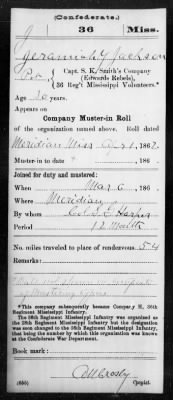 (Confederate.)
J 36 Miss.
Jeramiah Y Jackson
Pvt, Capt. S. K. Smith's Company
(Edwards Rebels),
36 Reg't Mississippi Volunteers.*
Age years.
Appears on
Company Muster-in Roll
of the organization named above. Roll dated
Meridian Miss 1, 1862.
Muster-in to date , 186 .
Joined for duty and mustered:
When Mar 6 , 186 .
Where Meridian
By whom Col Harper
Period 12 Months
No. miles traveled to place of rendezvous 54
Remarks:
*This company subsequently became Company H, 36th
Regiment Mississippi Infantry.
The 36th Regiment Mississippi Infantry was organized as
the 28th Regiment Mississippi Infantry but the designation
was soon changed to the 36th Regiment Mississippi Infantry,
that being the number by which this organization was known
at the Confederate War Department.
Book mark:
Crosby
(655) Copyist.